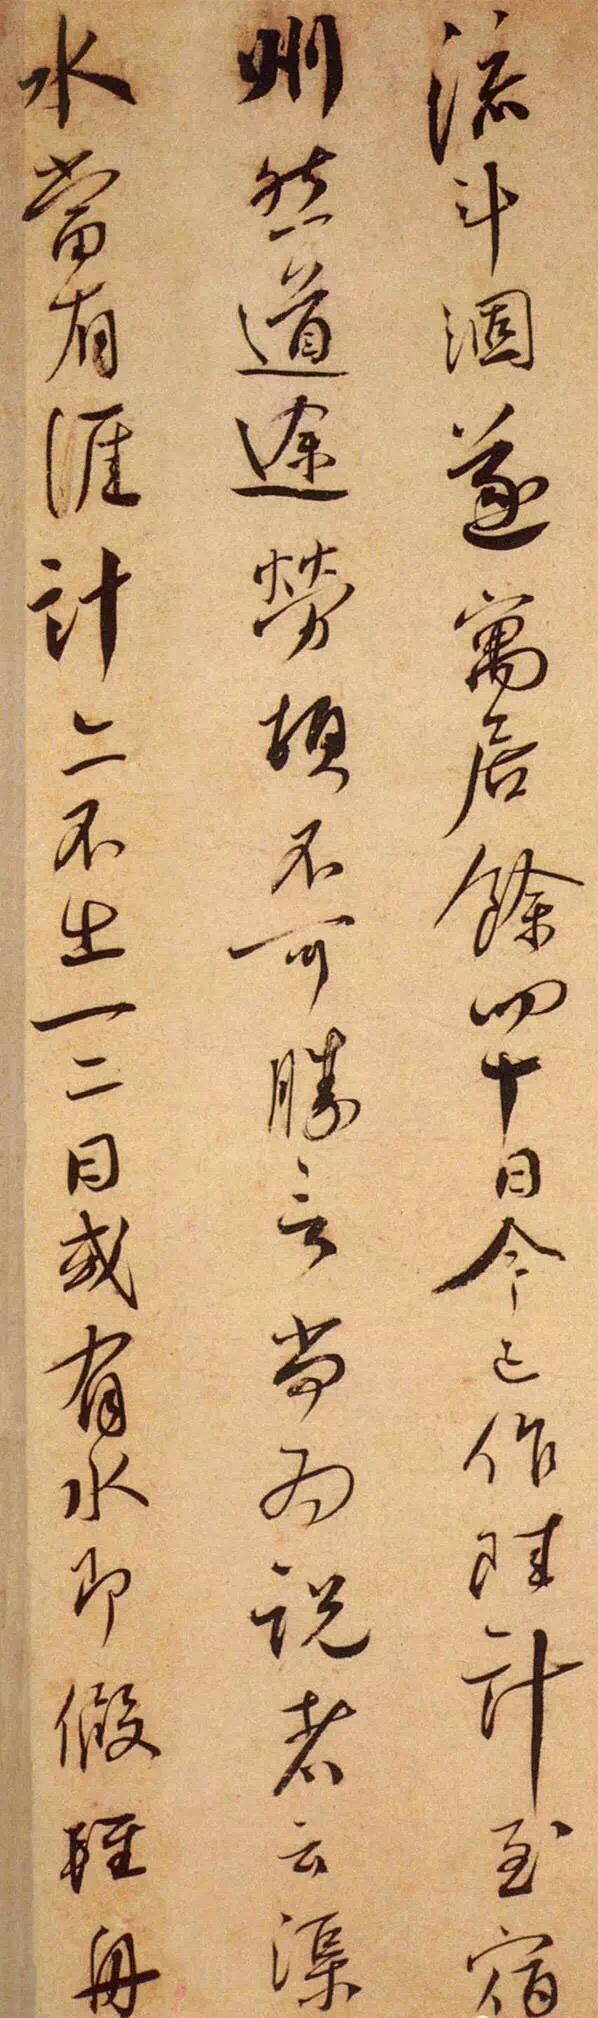 流斗涸遂寓居餘四十日今已作陸計至宿
州然道途勞頓不可勝言尚為說者云渠
水當有涯計亦不出一二日或有水即假輕舟